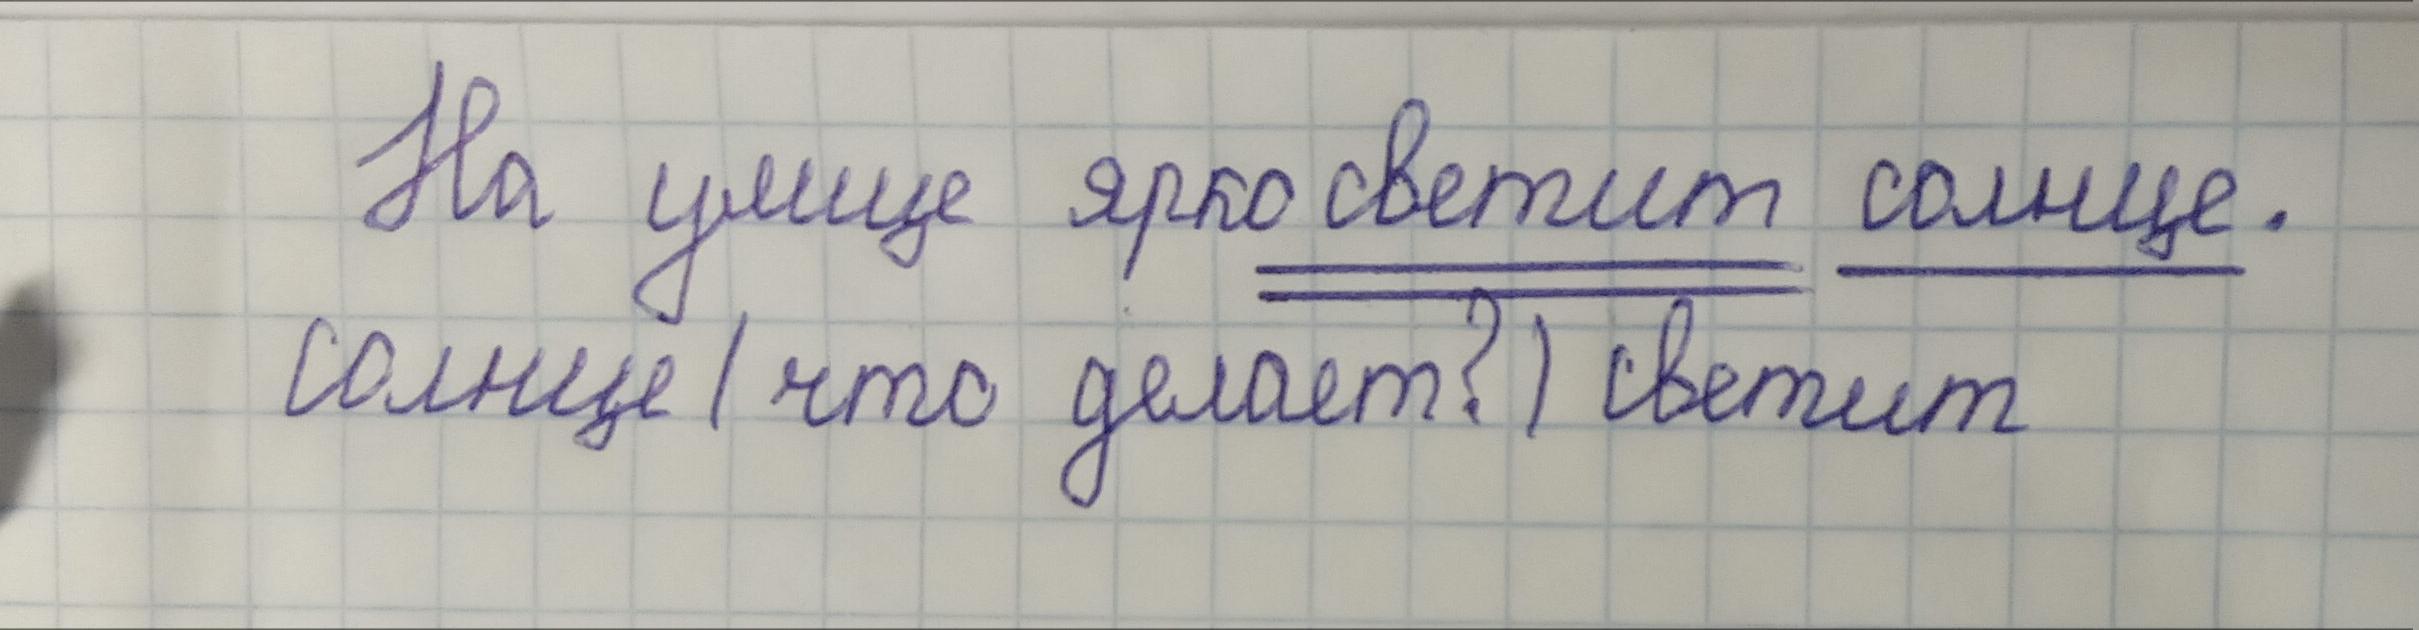 На улице ярко светит солнце.
солнце (что делает?) светит